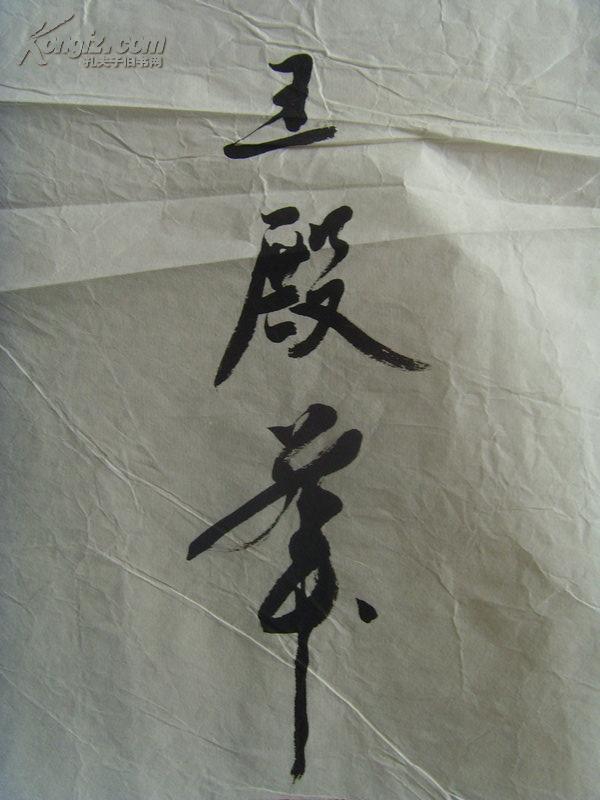 Kongfz.com
孔夫子旧书网
王殿